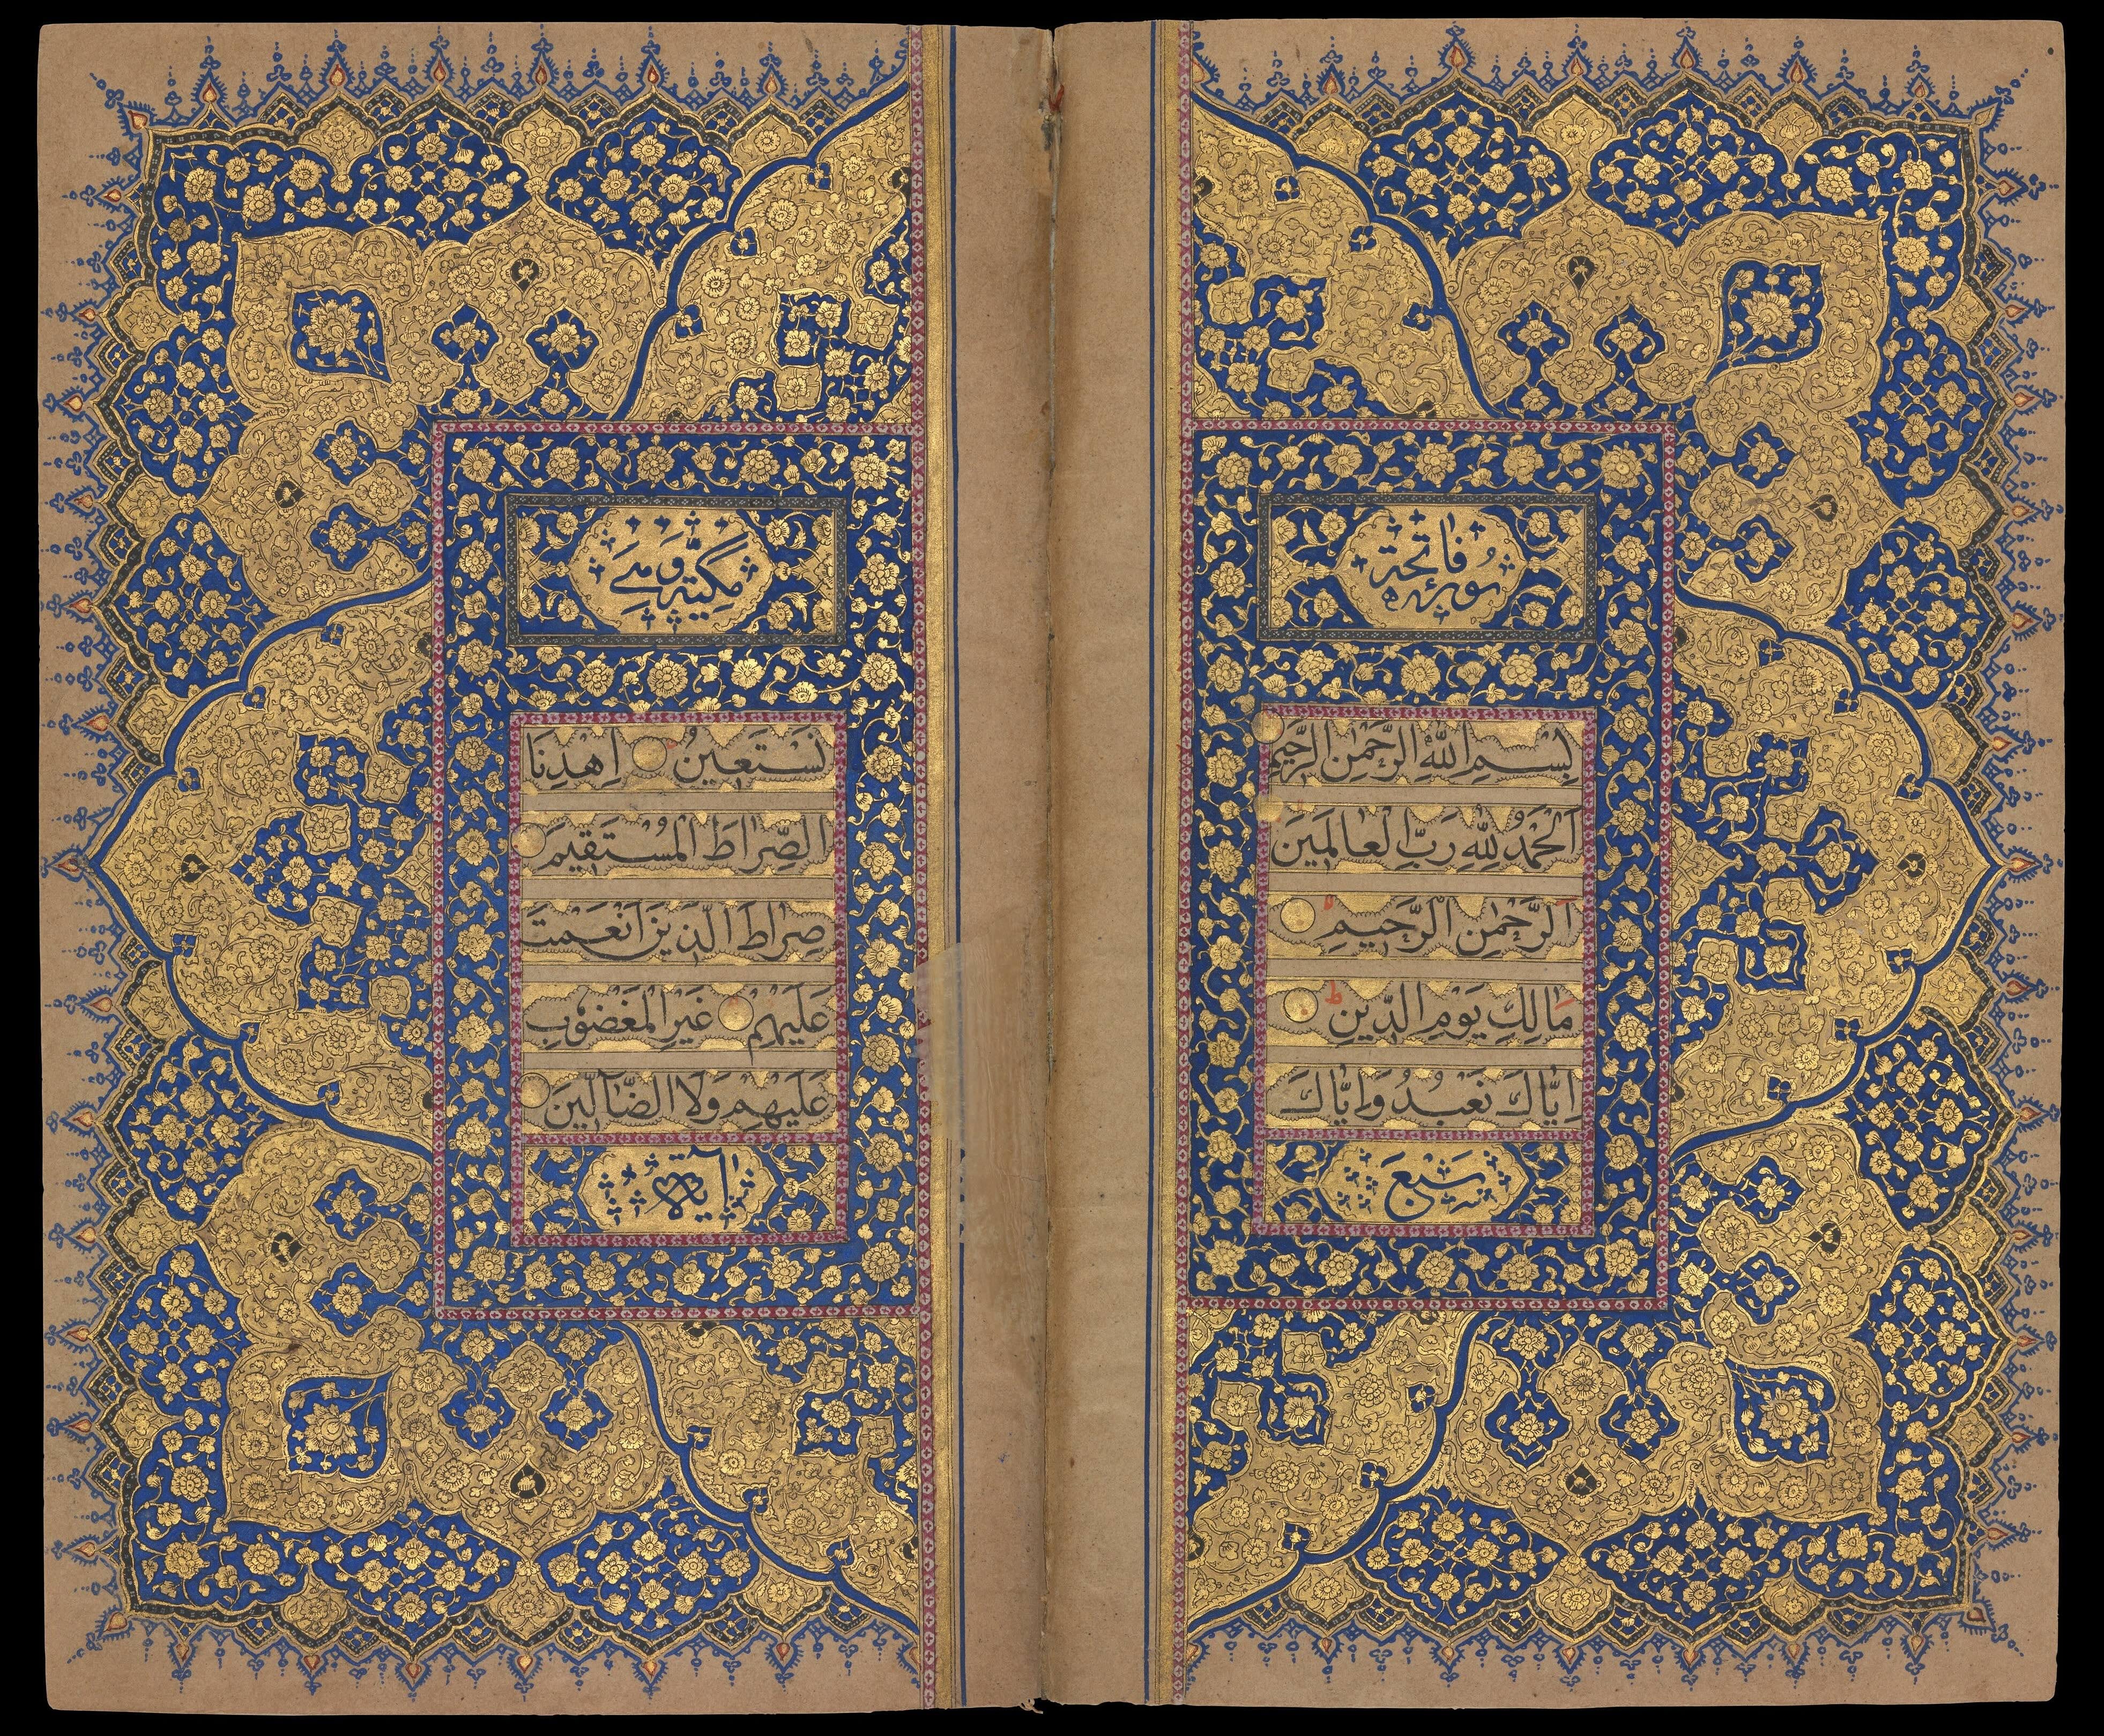 سورة فاتحة
بِسْمِ اللّٰهِ الرَّحْمٰنِ الرَّحِيمِ
اَلْحَمْدُ لِلّٰهِ رَبِّ الْعَالَمِينَ
اَلرَّحْمٰنِ الرَّحِيمِ
مَالِكِ يَوْمِ الدِّينِ
اِيَّاكَ نَعْبُدُ وَاِيَّاكَ
سَبْعَ
مَكِّيَّة وَ هِيَ
نَسْتَعِينُ اِهْدِنَا
الصِّرَاطَ الْمُسْتَقِيمَ
صِرَاطَ الَّذِينَ اَنْعَمْتَ
عَلَيْهِمْ غَيْرِ الْمَغْضُوبِ
عَلَيْهِمْ وَلَا الضَّآلِّينَ